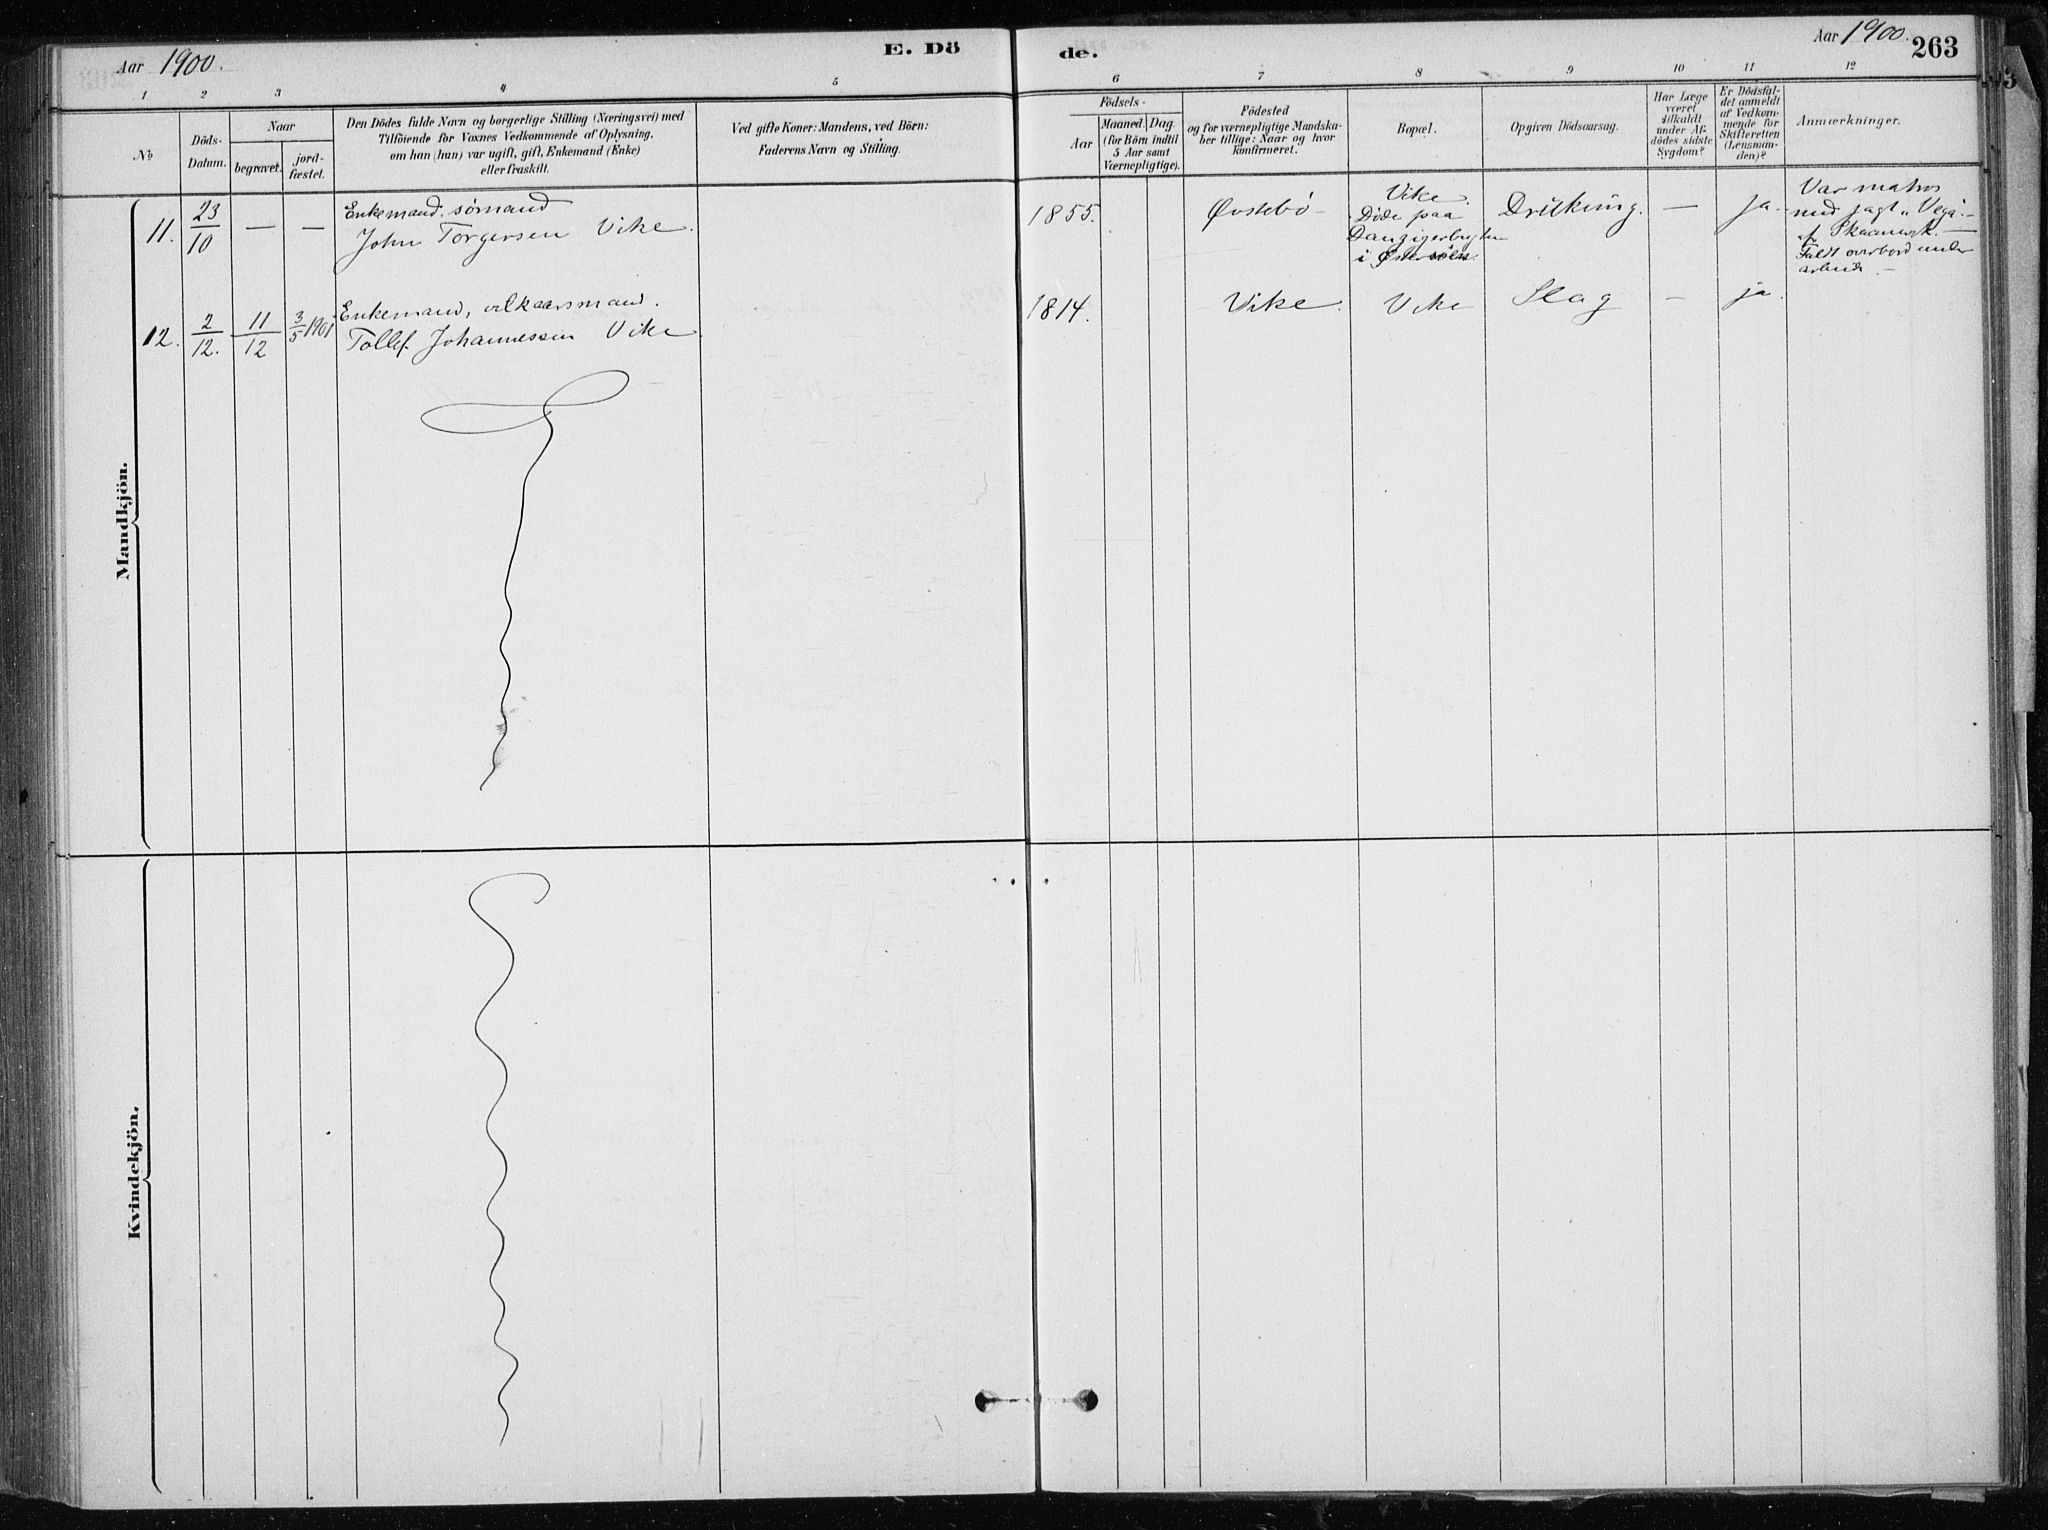 Aar 1900. E. Dö de. Aar 1900. 263
1 2 3 4 5 6 7 8 9 10 11 12
No
Döds-
Datum.
Naar
begravet.
jord-
fæstet.
Den Dödes fulde Navn og borgerlige Stilling (Næringsvei) med
Tilföiende for Voxnes Vedkommende af Oplysning,
om han (hun) var ugift, gift, Enkemand (Enke)
eller fraskilt.
Ved gifte Koner: Mandens, ved Börn:
Faderens Navn og Stilling.
Födsels-
Aar
Maaned. Dag.
(for Börn indtil
5 Aar samt
Værnepligtige).
Födested
og for værnepligtige Mandska-
ber tillige: Naar og hvor
konfirmeret.
Bopæl.
Opgiven Dödsaarsag.
Har Læge
været
tilkaldt
under Af-
dödes sidste
Sygdom?
Er Dödsfal-
det anmeldt
af Vedkom-
mende for
Skifteretten
(Lensman-
den)?
Anmærkninger.
Mandkjön.
11.
23
10
—
—
Enkemand. sömand
John Torgersen Vike.
1855.
Øvstebö
Vike.
Döde paa
Danzigerbugten
i Østersöen.
Drukning.
—
ja.
Var matros
med jagt "Vega"
af
Faldt overbord under
arbeide.
12.
2
12.
11
12
3
5 1901
Enkemand, vilkaarsmand.
Tollef Johannessen Vike.
1814.
Vike.
Vike
Slag
—
ja.
Kvindekjön.